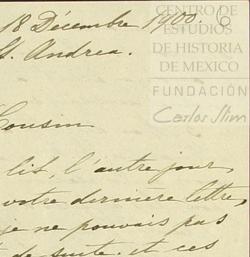 18 Décembre 1900.
St. Andrea.
CENTRO DE
ESTUDIOS
DE HISTORIA
DE MEXICO
FUNDACIÓN
Carlos Slim
Cousin
lis, l'autre jour,
votre dernière lettre,
je ne pouvais pas
de suite. et ces